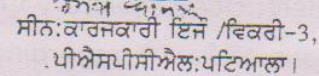 ਸੀਨ:ਕਾਰਜਕਾਰੀ ਇੰਜੀ /ਵਿਕਰੀ-3,
ਪੀਐਸਪੀਸੀਐਲ:ਪਟਿਆਲਾ।